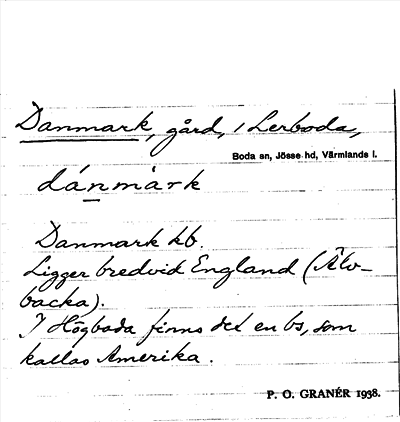 Danmark, gård, i Lerboda,
Boda sn, Jösse hd, Värmlands l.
dánmàrk
Danmark kb.
Ligger bredvid England (Älv-
backa).
I Högboda finns det en bs, som
kallas Amerika.
P. O. GRANÉR 1938.